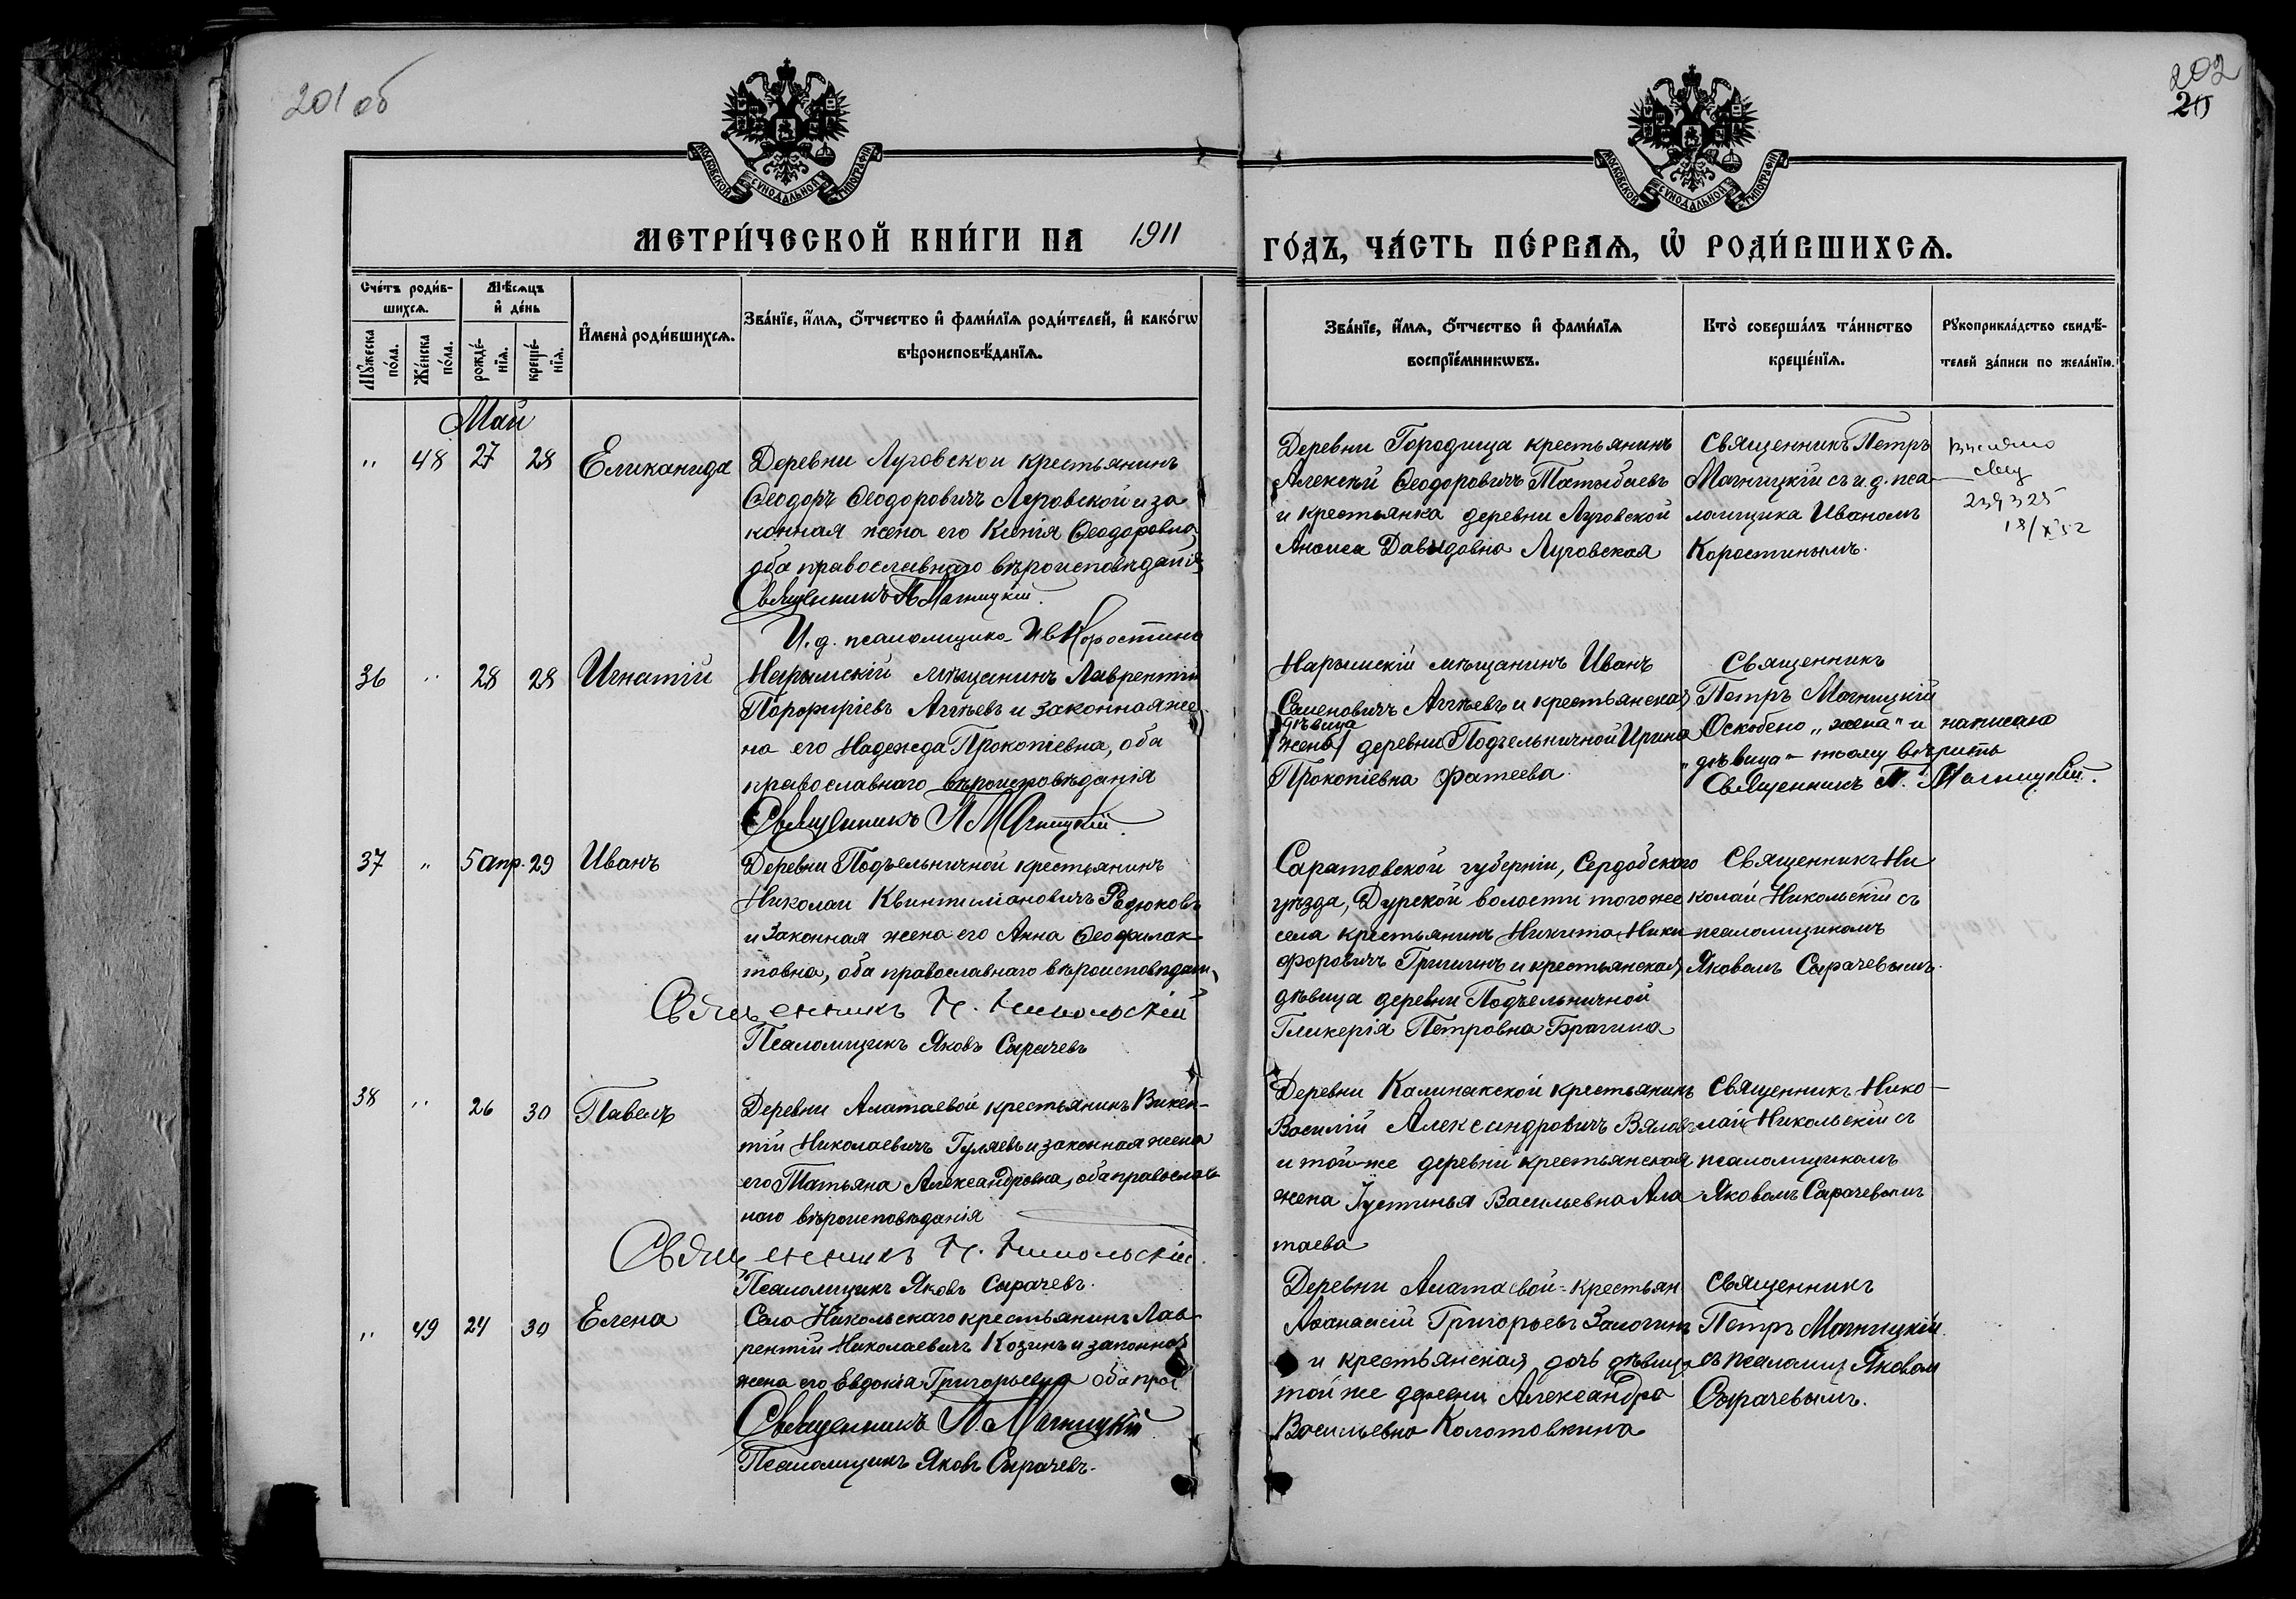 201 об
202
МОСКОВСКОЙ СѴНОДАЛЬНОЙ ТИПОГРАФІИ
МОСКОВСКОЙ СѴНОДАЛЬНОЙ ТИПОГРАФІИ
МЕТРИ́ЧЕСКОЙ КНИ́ГИ НА 1911
ГО́ДЪ, ЧА́СТЬ ПЕ́РВАѦ, Ѡ҆ РОДИ́ВШИХСѦ.
Сче́тъ роди́в-
шихсѧ.
Мꙋ́жеска
по́ла.
Же́нска
по́ла.
Мѣ́сѧцъ
и҆ де́нь
рожде́-
нїѧ.
креще́-
нїѧ.
И҆мена̀ роди́вшихсѧ.
Зва́нїе, и҆́мѧ, ѻ҆́тчество и҆ фами́лїѧ роди́телей, и҆ како́гѡ
вѣроисповѣ́данїѧ.
Зва́нїе, и҆́мѧ, ѻ҆́тчество и҆ фами́лїѧ
воспрїе́мникѡвъ.
Кто̀ соверша́лъ та́инство
креще́нїѧ.
Рꙋкоприкла́дство свидѣ́-
телей за́писи по жела́нїю.
Май
" 48 27 28 Еликанида
Деревни Луговской крестьянинъ
Ѳеодоръ Ѳеодоровичъ Луговской и за
конная жена его Ксенія Ѳеодоровна,
оба православнаго вѣроисповѣданія
Священникъ П Магницкій.
И. д. псаломщика Ив Коростинъ
Деревни Городища крестьянинъ
Алексѣй Ѳеодоровичъ Татыбаевъ
и крестьянка деревни Луговской
Анисса Давыдовна Луговская
Священникъ Петръ
Магницкій съ и. д. пса-
ломщика Иваномъ
Коростинымъ.
239325
18/X 52
36 " 28 28 Игнатій
Нарымскій мѣщанинъ Лаврентій
Порфиріевъ Аггѣевъ и законная же
на его Надежда Прокопіевна, оба
православнаго вѣроисповѣданія
Священникъ П Магницкій.
Нарымскій мѣщанинъ Иванъ
Семеновичъ Аггѣевъ и крестьянская
дѣвица
(жена) деревни Подъельничной Ирина
Прокопіевна Фатеева.
Священникъ
Петръ Магницкій
Оскоблено „жена" и написано
„дѣвица" – тому вѣрить
Священникъ П. Магницкій.
37 " 5 апр. 29 Иванъ
Деревни Подъельничной крестьянинъ
Николай Квинтиліановичъ Родюковъ
и законная жена его Анна Ѳеофилак-
товна, оба православнаго вѣроисповѣдан.
Священникъ Н. Никольскій
Псаломщикъ Яковъ Сырачевъ
Саратовской губерніи, Сердобскаго
уѣзда, Дурской волости того же
села крестьянинъ Никита Ники-
форовичъ Гришинъ и крестьянская
дѣвица деревни Подъельничной
Гликерія Петровна Брагина
Священникъ Ни
колай Никольскій съ
псаломщикомъ
Яковомъ Сырачевымъ.
38 " 26 30 Павелъ
Деревни Алатаевой крестьянинъ Викен-
тій Николаевичъ Гуляевъ и законная жена
его Татьяна Александровна, оба православ-
наго вѣроисповѣданія
Священникъ Н. Никольскій.
Псаломщикъ Яковъ Сырачевъ.
Деревни Калинакской крестьянинъ
Василій Александровичъ Вяловъ
и той-же деревни крестьянская
жена Іустинья Васильевна Ала
таева
Священникъ Нико-
лай Никольскій съ
псаломщикомъ
Яковомъ Сырачевымъ
" 49 24 30 Елена
Села Никольскаго крестьянинъ Лав-
рентій Николаевичъ Козинъ и законная
жена его Евдокіа Григорьевна оба прав
Священникъ П. Магницкій
Псаломщикъ Яковъ Сырачевъ.
Деревни Алатаевой - крестьян
Аѳанасій Григорьевъ Залогинъ
и крестьянская дочь дѣвица
той же деревни Александра
Васильевна Колотовкина
Священникъ
Петръ Магницкій
съ псаломщ Яковом
Сырачевымъ.